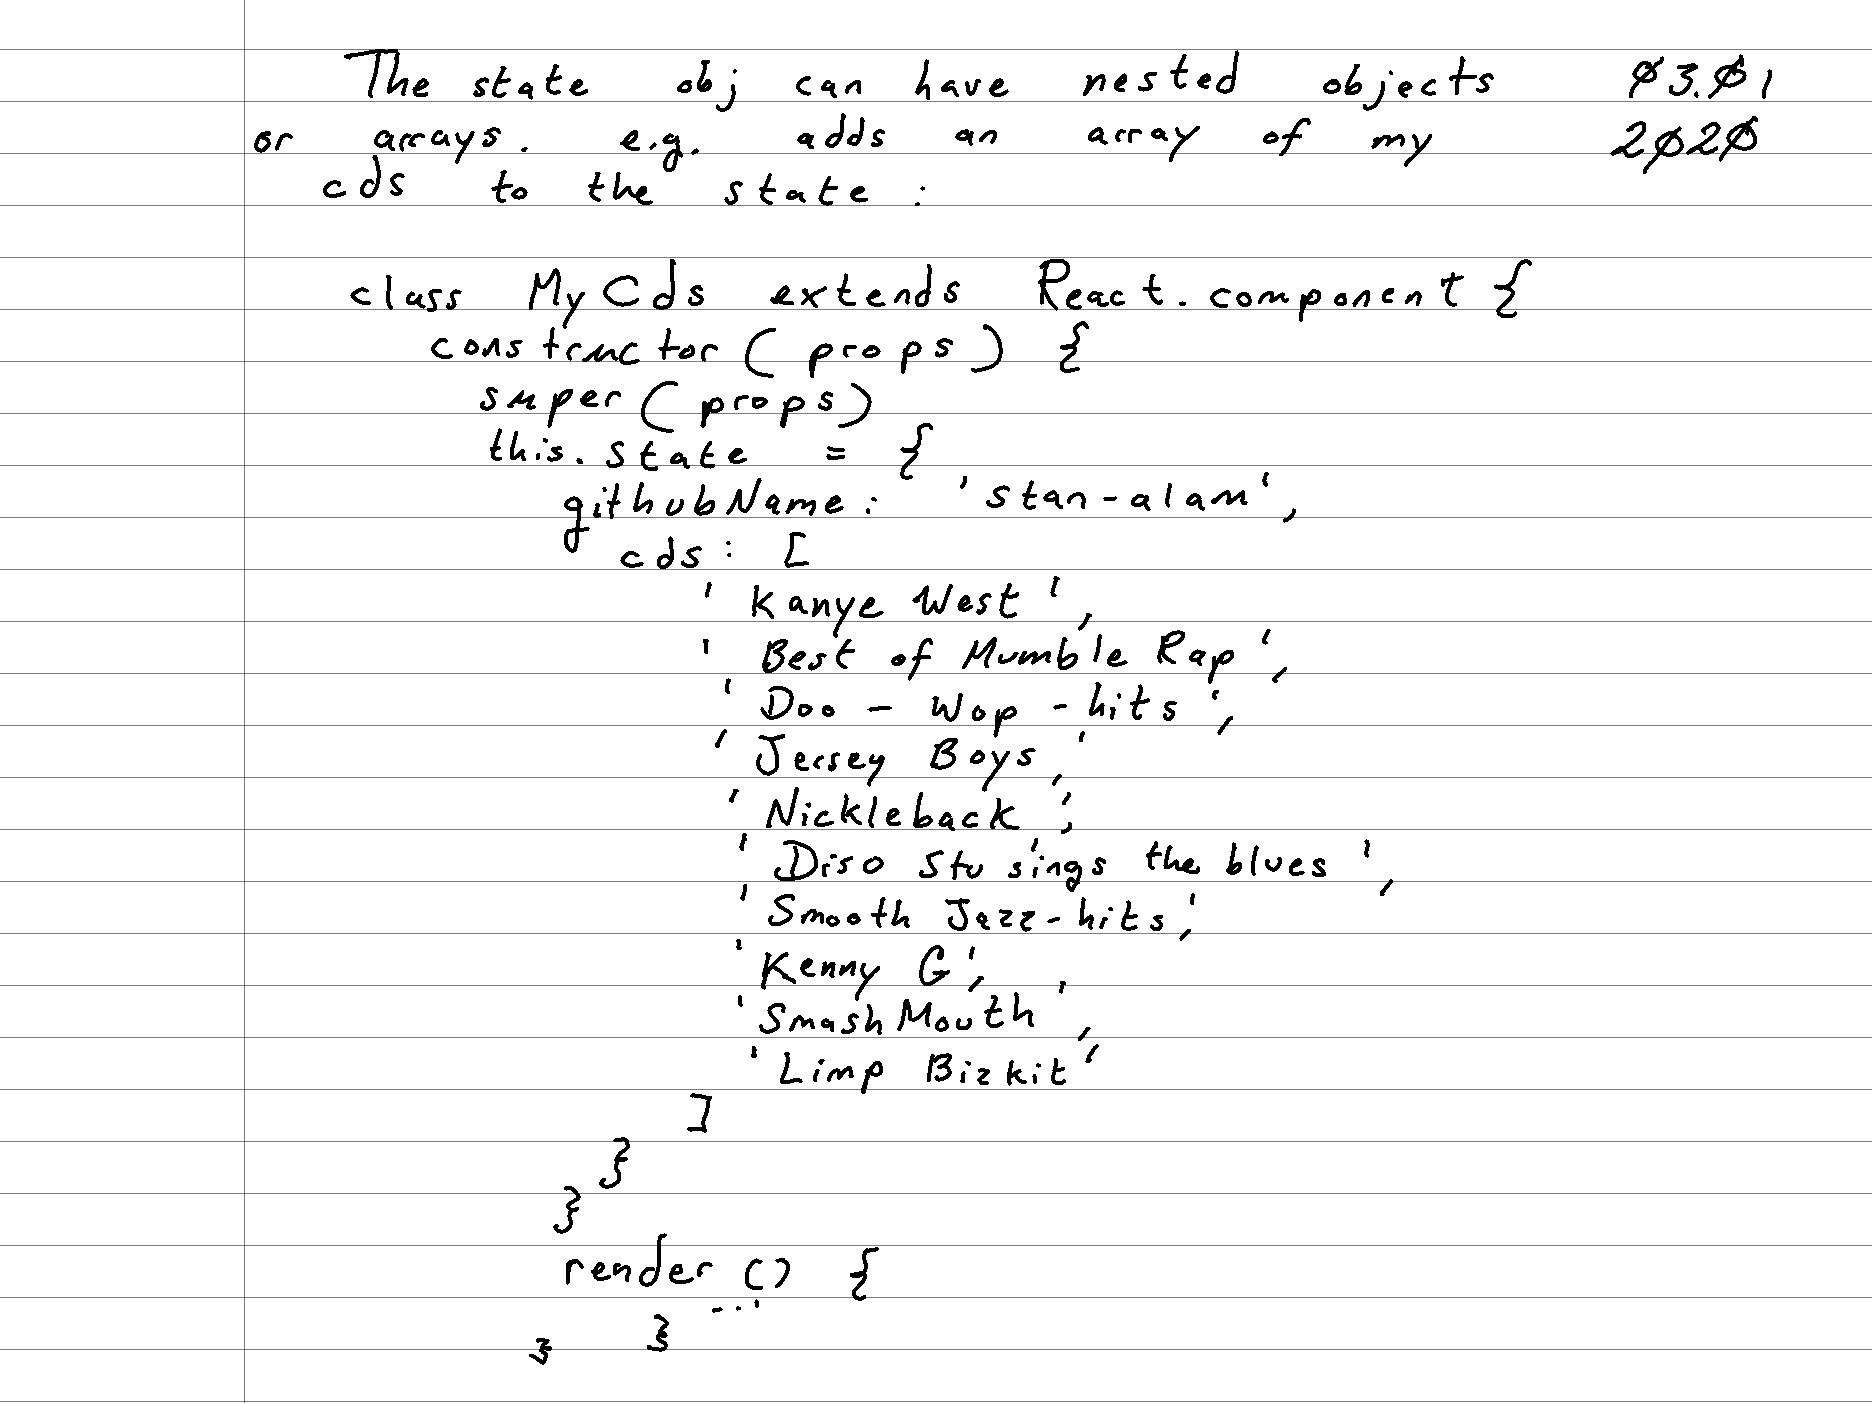 The state obj can have nested objects Ø3.Ø1
or arrays. e.g. adds an array of my 2Ø2Ø
cds to the state :
class MyCds extends React.component {
constructor ( props ) {
super ( props )
this.state = {
githubName : 'stan-alam',
cds : [
'Kanye West',
'Best of Mumble Rap',
'Doo - Wop - hits',
'Jersey Boys',
'Nickleback',
'Diso Stu sings the blues',
'Smooth Jazz-hits',
'Kenny G',
'Smash Mouth',
'Limp Bizkit'
]
}
}
render () {
...
}
}